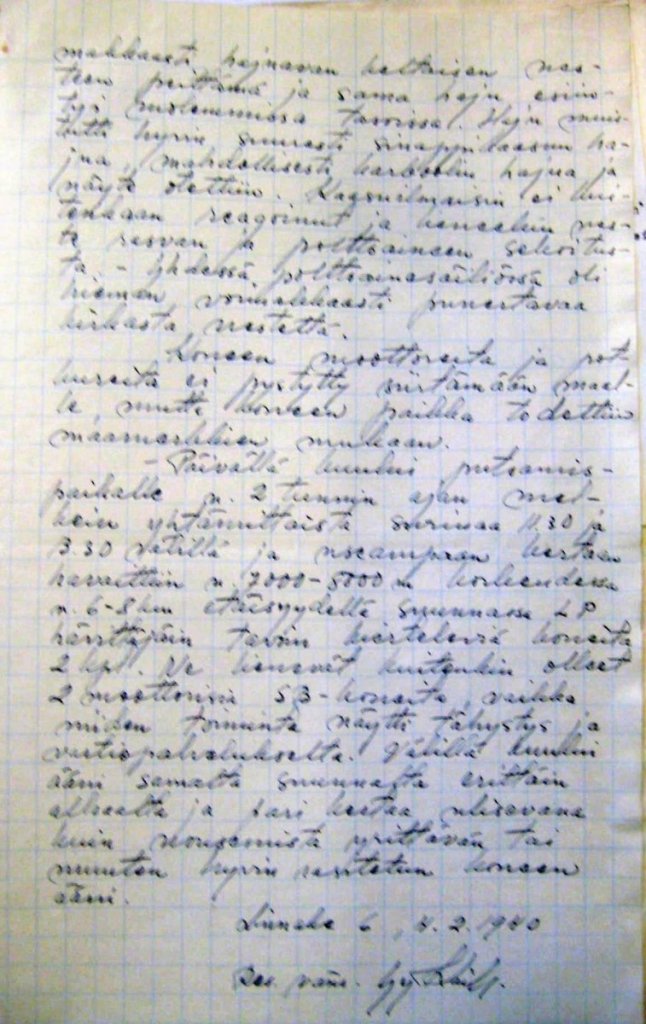 makkaasti hajuavan keltaisen nes-
teen peittämä ja sama haju esiin-
tyi molemmissa tavoissa. Haju muis-
tutti hyvin suuresti sinappikaasun ha-
jua, mahdollisesti karboolin hajua ja
näyte otettiin. Kaasunilmaisin ei kui-
tenkaan reagoinut ja lieneekin nes-
te rasvan ja polttoaineen sekoitus-
ta. - Yhdessä polttoainesäiliössä oli
hieman voimakkaasti punertavaa
kirkasta nestettä.
Koneen moottoreita ja pot-
kureita ei pystytty siirtämään maal-
le, mutta koneen paikka todettiin
maamerkkien mukaan.
- Päivällä kuului putoamis-
paikalle n. 2 tunnin ajan mel-
kein yhtämittaista surinaa 11.30 ja
3.30 välillä ja useamman kerran
havaittiin n. 7000-8000 m korkeudessa
n. 6-8 km etäisyydellä suunnassa LP
hävittäjäin tavoin kierteleviä koneita
2 kpl. Ne lienevät kuitenkin olleet
2 moottorisia SB-koneita, vaikka
niiden toiminta näytti tähystys ja
vartiopalvelukselta. Välillä kuului
ääni samalta suunnalta erittäin
alhaalta ja pari kertaa ulisevana
kuin nousemista yrittävän tai
muuten hyvin rasitetun koneen
ääni.
6, 4.2.1940
Res. vänr.